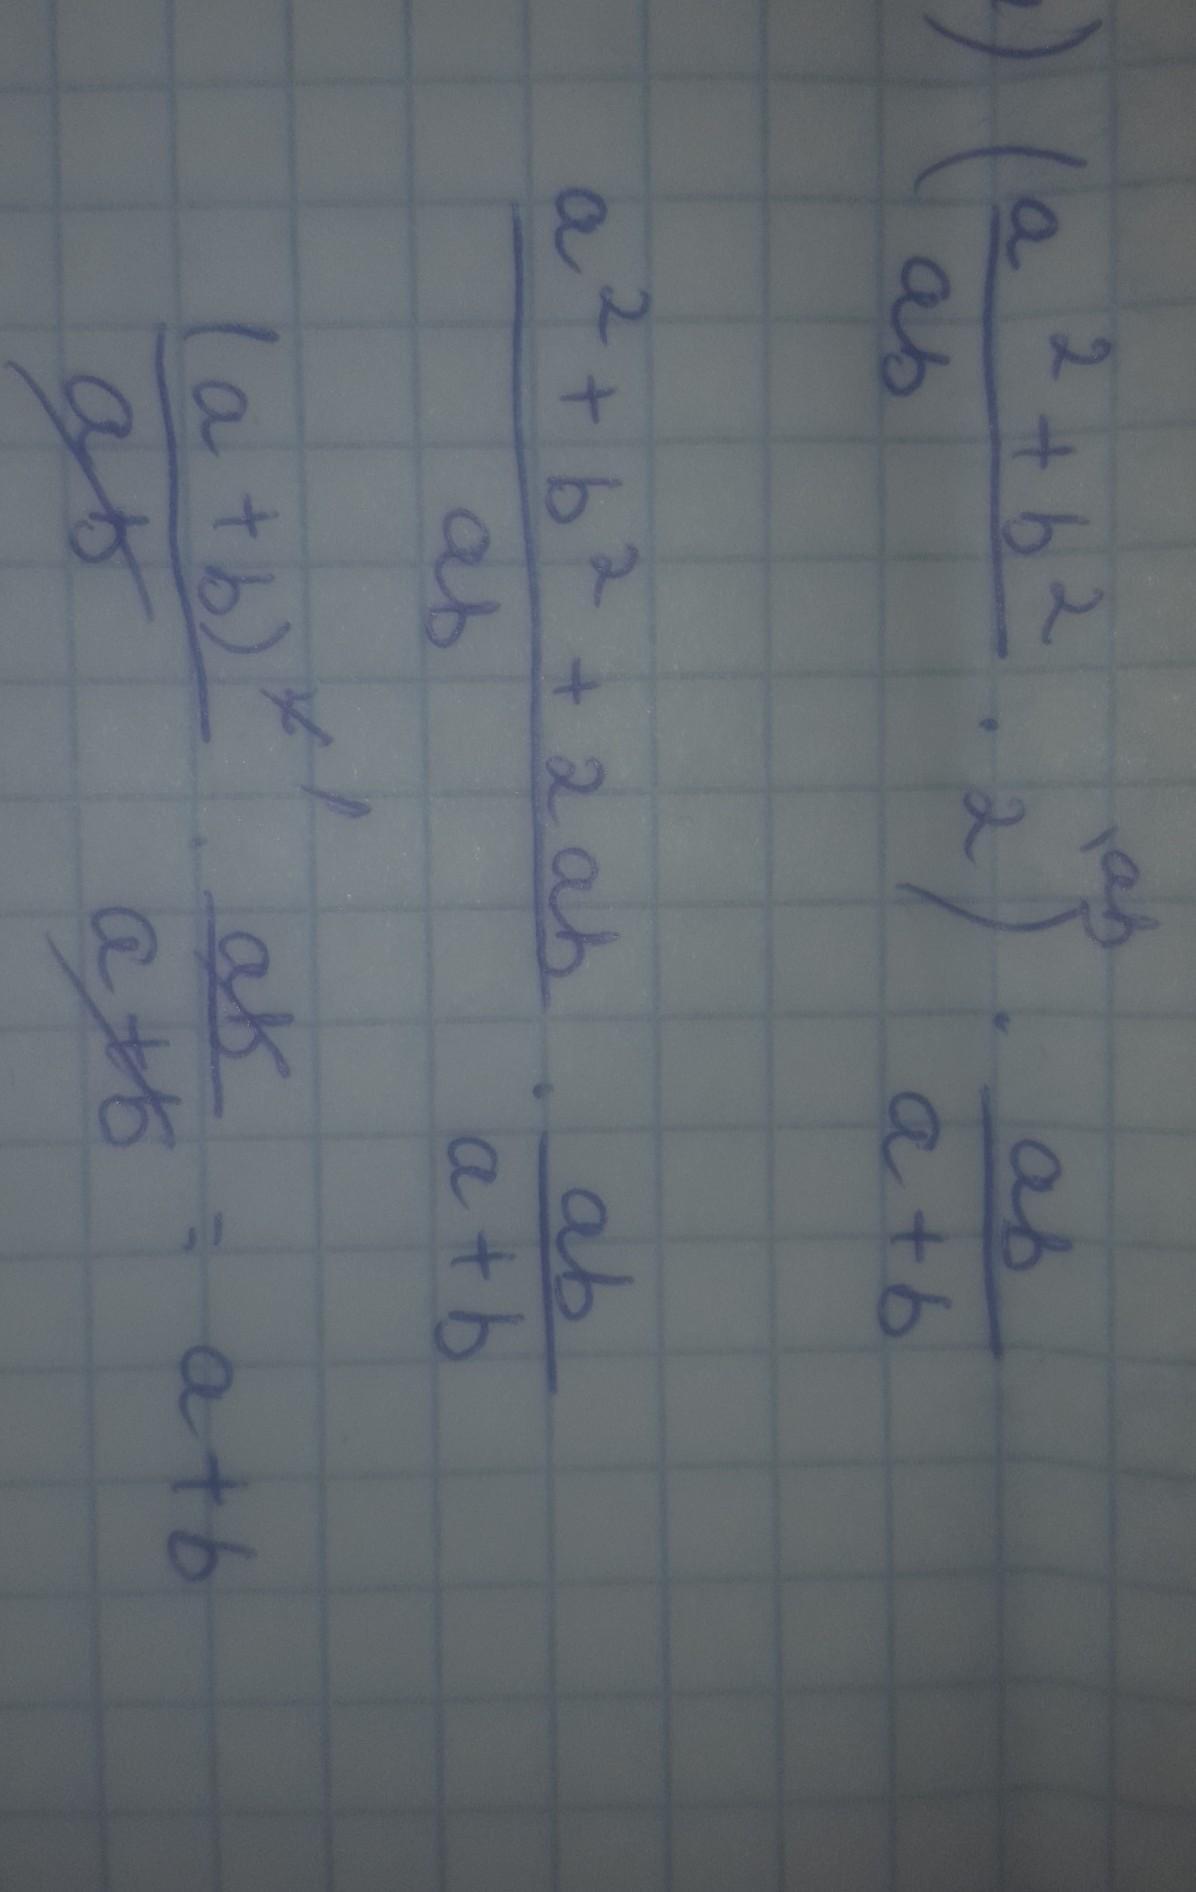 ) (a² + b²/ab · 2)^\ab · ab/a + b
a² + b² + 2ab/ab · ab/a + b
(a + b)² ¹/ab · ab/a + b = a + b